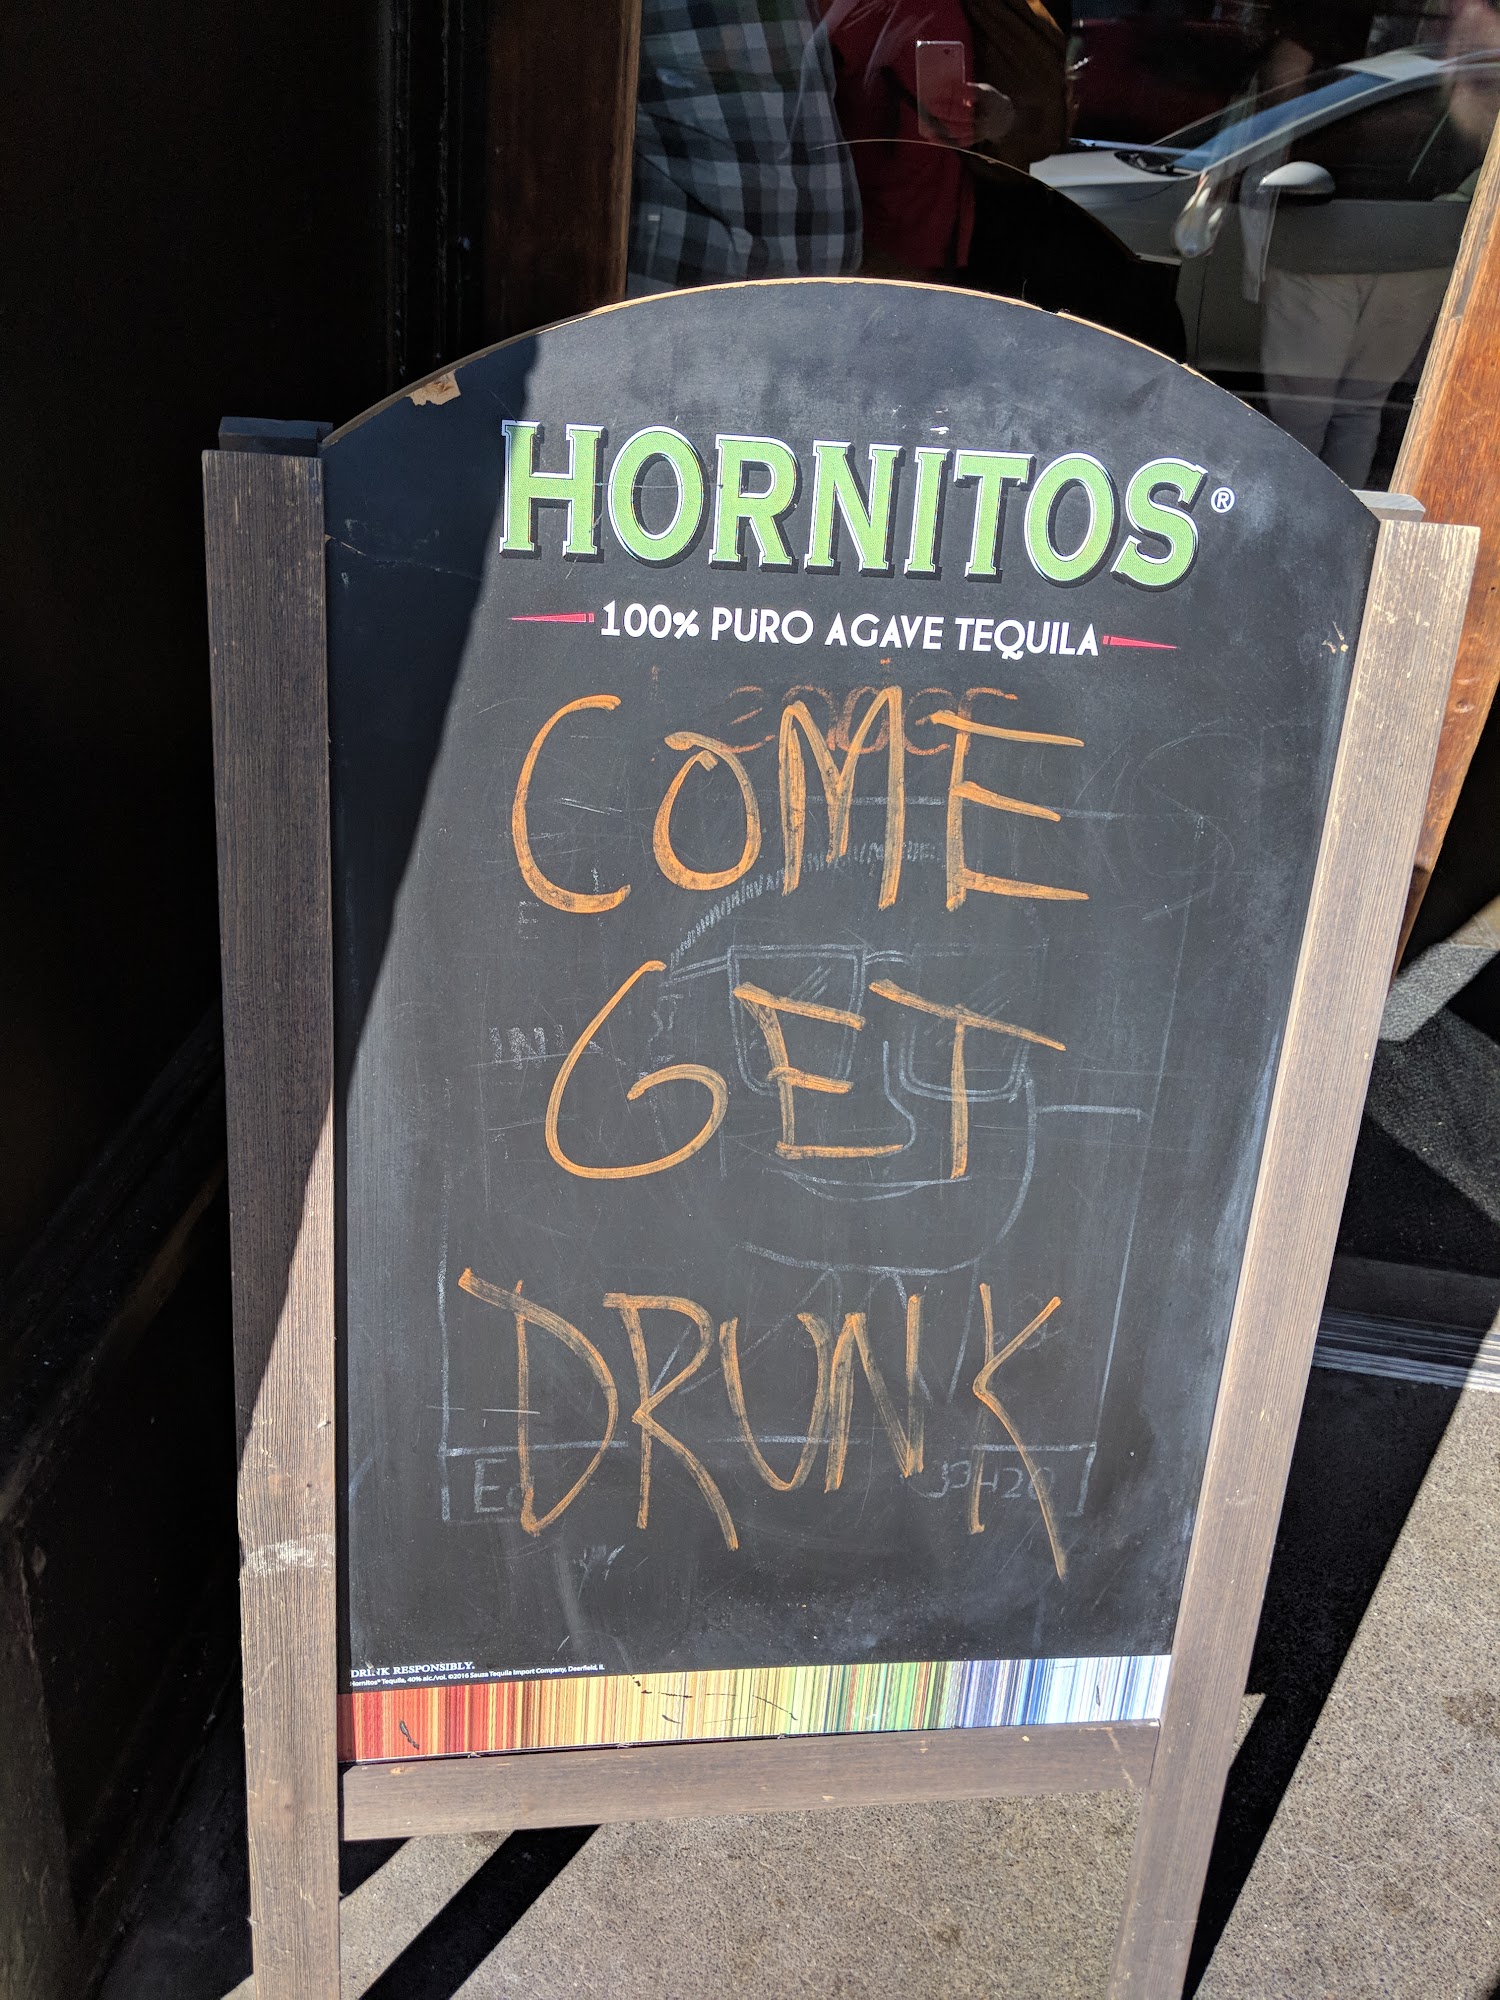 HORNITOS®
100% PURO AGAVE TEQUILA
COME
GET
DRUNK
DRINK RESPONSIBLY.
Hornitos® Tequila, 40% alc./vol. ©2016 Sauza Tequila Import Company, Deerfield, IL